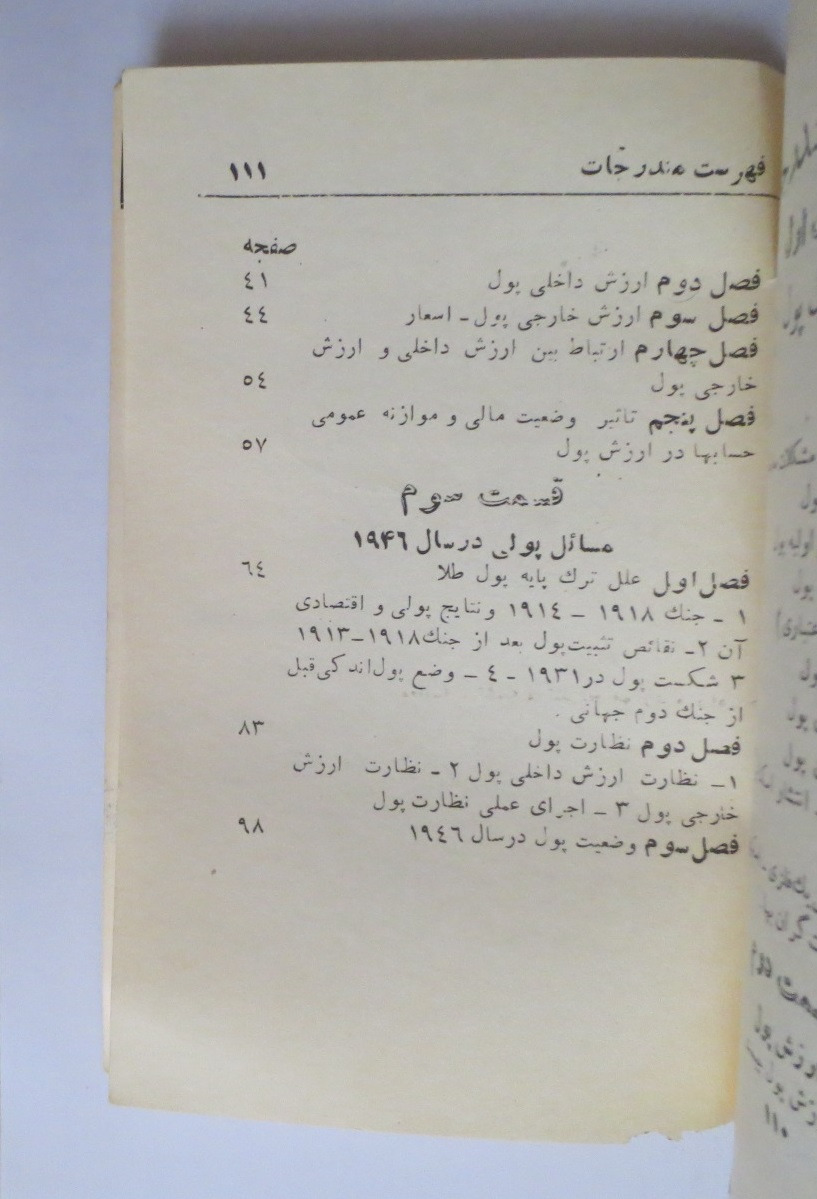 فهرست مندرجات ۱۱۱
صفحه
فصل دوم ارزش داخلی پول ٤۱
فصل سوم ارزش خارجی پول ـ اسعار ٤٤
فصل چهارم ارتباط بین ارزش داخلی و ارزش
خارجی پول ٥٤
فصل پنجم تاثیر وضعیت مالی و موازنه عمومی
حسابها در ارزش پول ٥۷
قسمت سوم
مسائل پولی در سال ۱۹۴۶
فصل اول علل ترك پایه پول طلا ٦٤
۱ ـ جنك ۱۹۱۸ ـ ۱۹۱٤ و نتایج پولی و اقتصادی
آن ۲ـ نقائص تثبیت پول بعد از جنك ۱۹۱۸ـ۱۹۱۳
۳ شکست پول در ۱۹۳۱ ـ ٤ ـ وضع پول اندکی قبل
از جنك دوم جهانی .
فصل دوم نظارت پول ۸۳
۱ـ نظارت ارزش داخلی پول ۲ ـ نظارت ارزش
خارجی پول ۳ ـ اجرای عملی نظارت پول
فصل سوم وضعیت پول در سال ۱۹٤٦ ۹۸
پول
پول
پول
پول
پول
۱۱۰